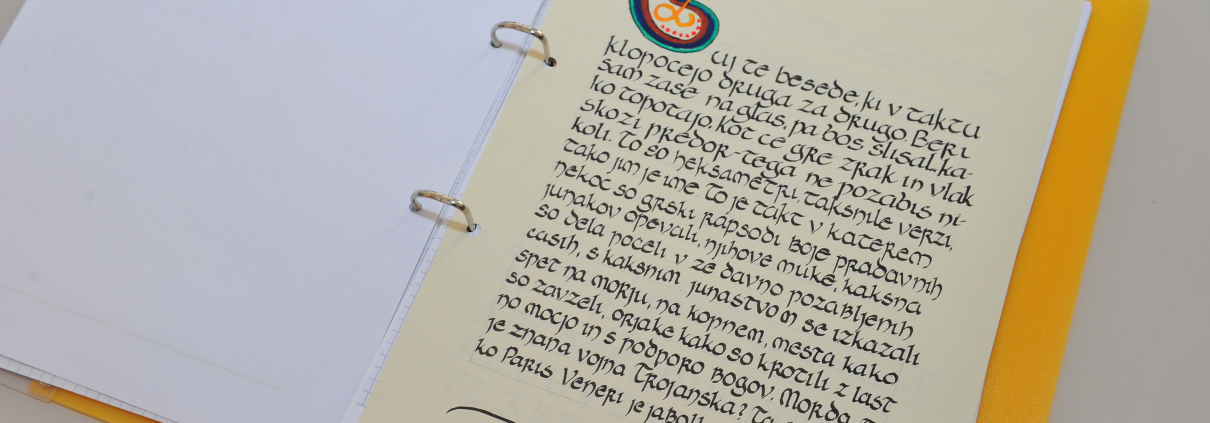 uj te besede, ki v taktu
klopocejo druga za drugo. Beri
sam zase na glas, pa bos slisal, ka-
ko topotajo, kot ce gre zrak in vlak
skozi predor - tega ne pozabis ni-
koli. To so heksametri, taksnile verzi,
tako jim je ime to je takt v katerem
nekoc so grski rapsodi boje pradavnih
junakov opevali, njihove muke, kaksna
so dela poceli v ze davno pozabljenih
casih, s kaksnim junastvom se izkazali
spet na morju, na kopnem, mesta kako
so zavzeli, orjake kako so krotili z last
no mocjo in s podporo bogov. Morda
je znana vojna Trojanska?
ko Paris Veneri je